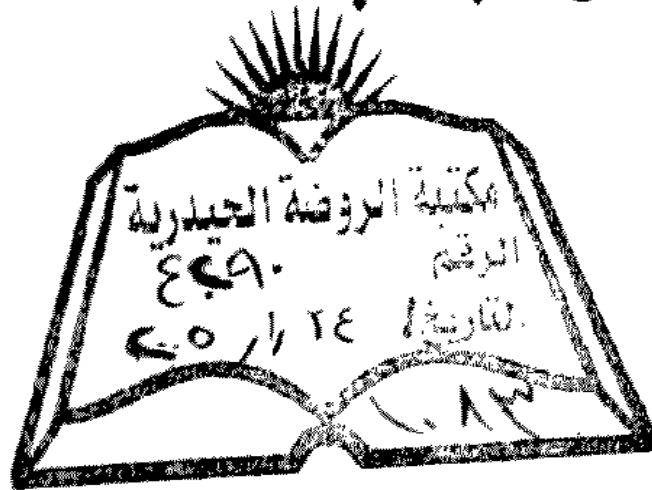 مكتبة الروضة الحيدرية
الرقم ٤٢٩٠
التاريخ ٢٤ / ١ /
١٠٨٣